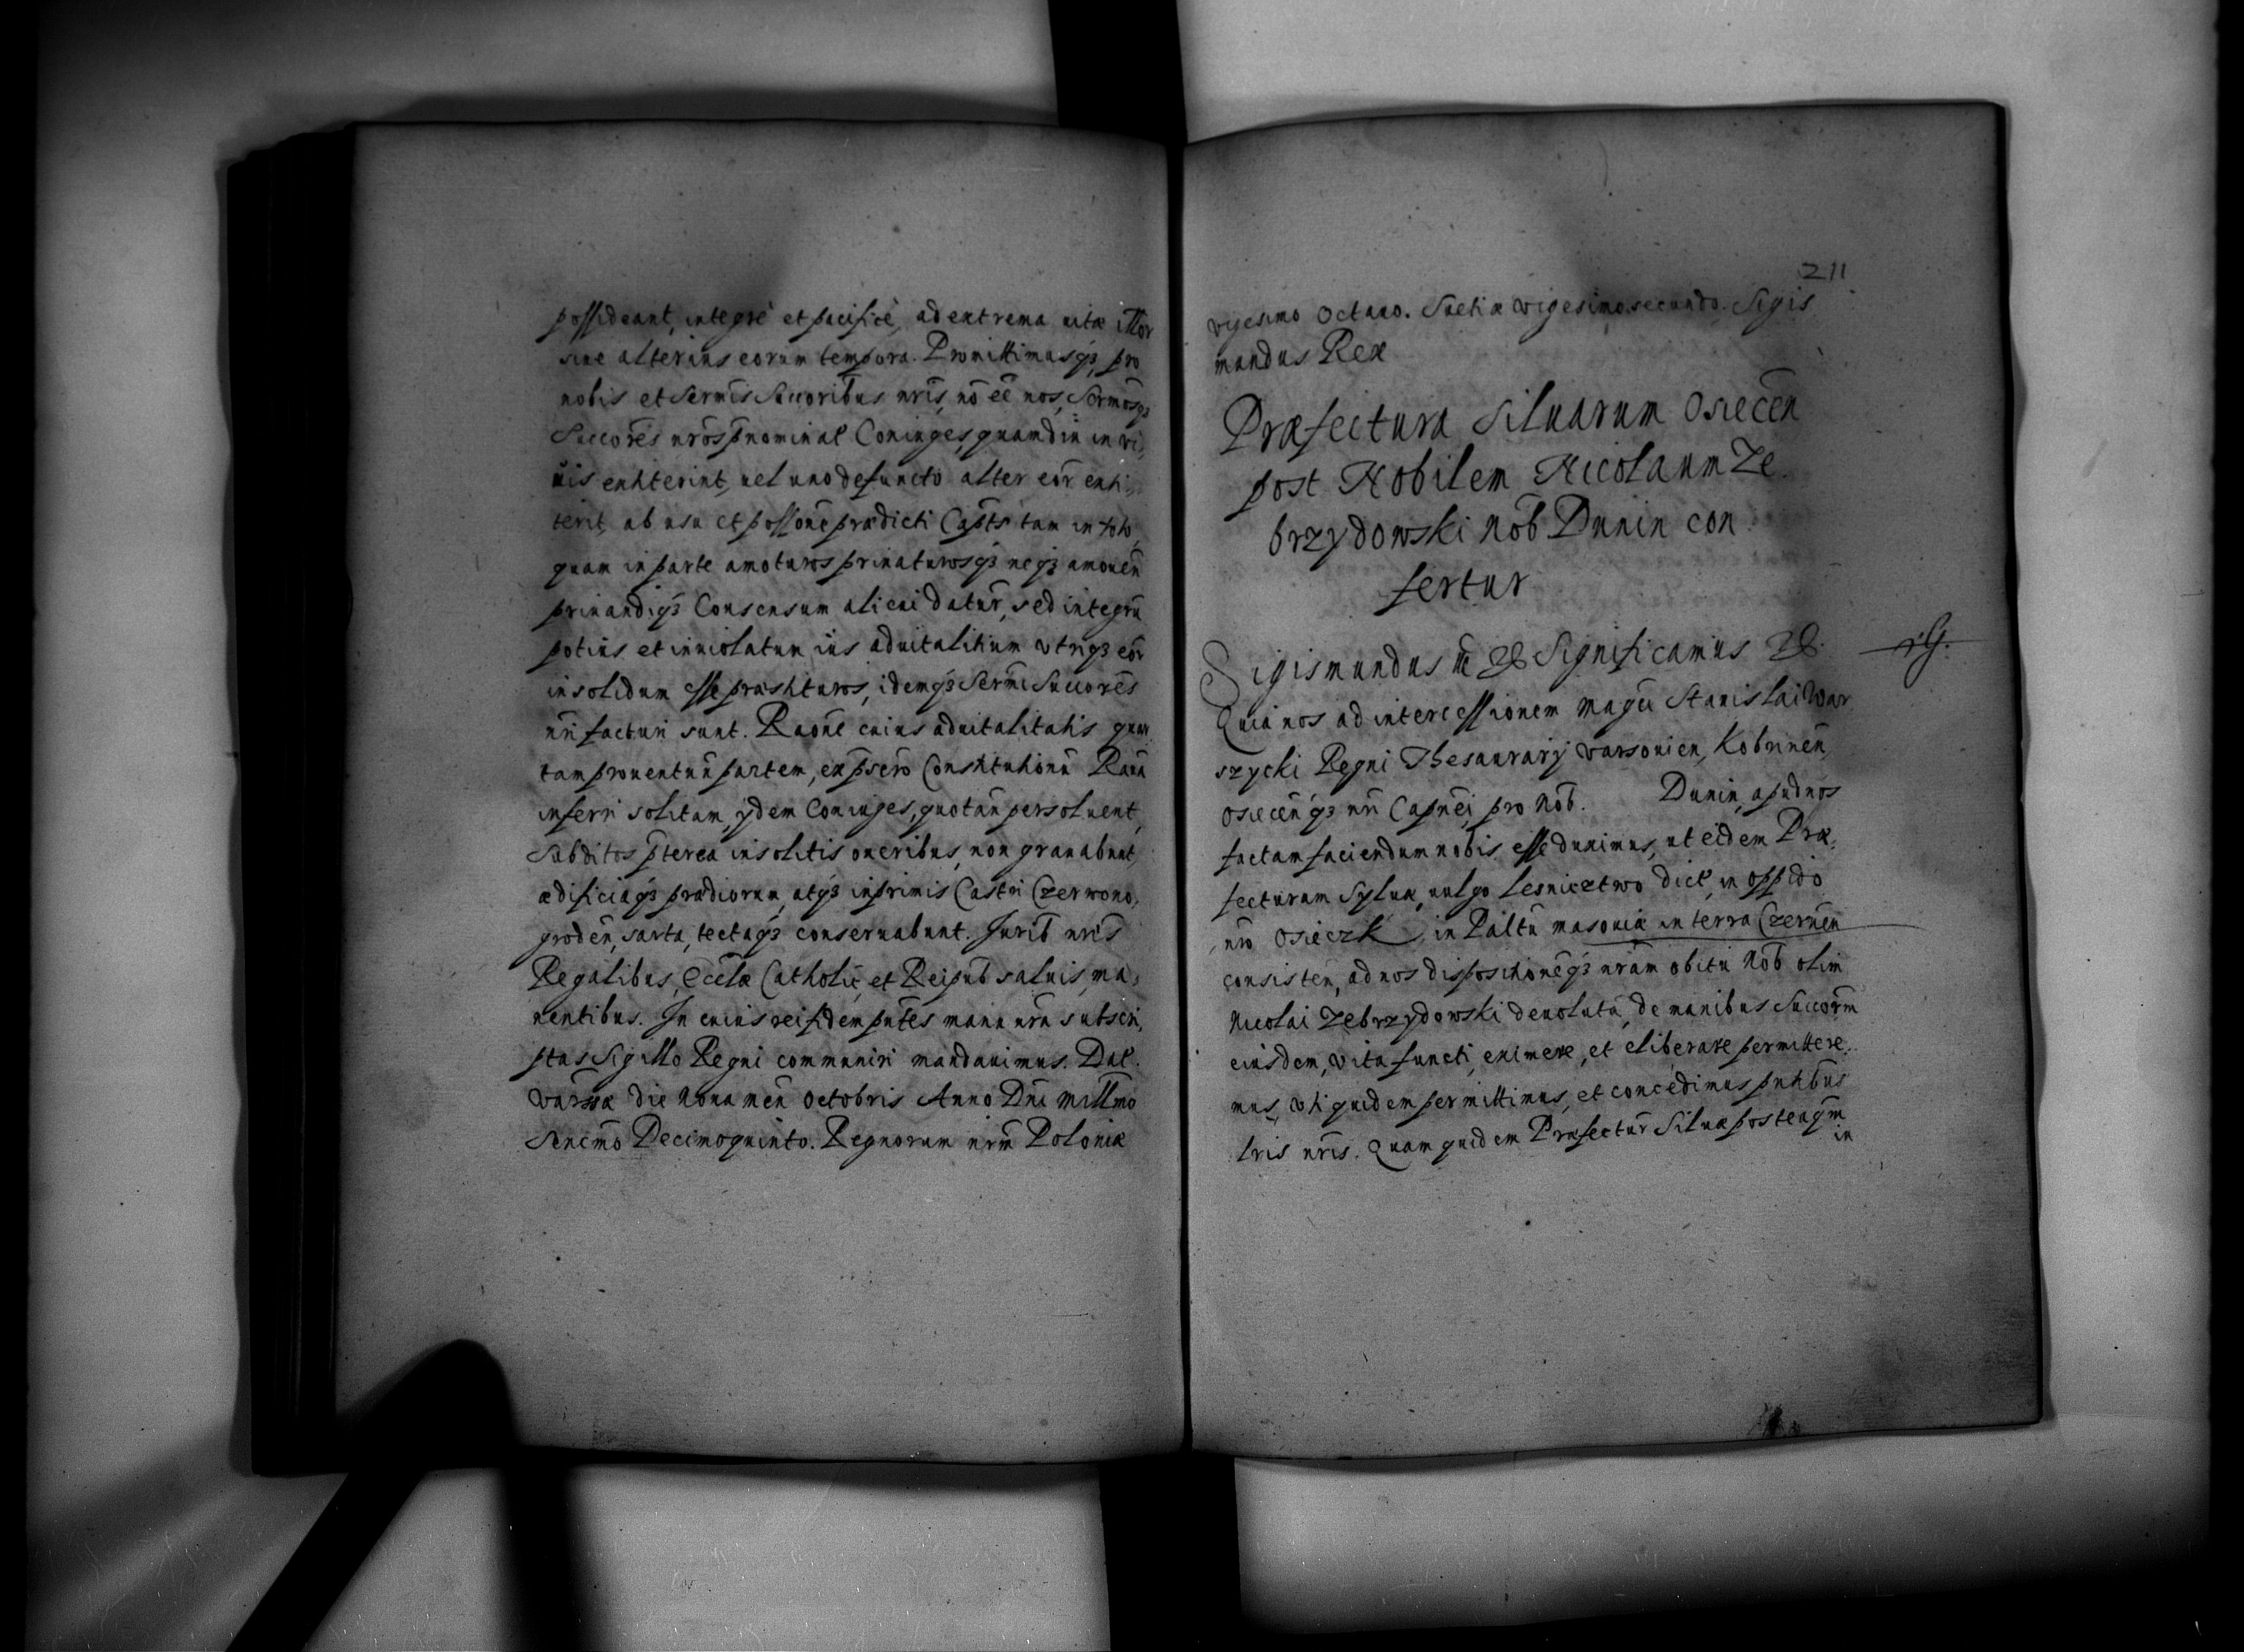 possideant, integrè et pacificè, ad extrema uitæ illor̄
siue alterius eorum tempora. Promittimusq́ꝫ pro
nobis et Sermis Succoribus nris, nō eē nos, Sermosqꝫ
Succores nros p̄nominat Coniuges, quamdiu in vi,
uis extiterint, uel uno defuncto alter eor̄ exti,
terit, ab usu et possone prædicti Capts tam in toto,
quam in parte amoturos priuaturosq́ꝫ neq́ꝫ amouen̄
priuandiq́ꝫ Consensum alicui daturos, sed integrū
potius et inuiolatum ius aduitalitium vtriqꝫ eor̄
in solidum esse præstituros, idemq́ꝫ Sermi Succores
nri facturi sunt. Raone cuius aduitalitatis quar
tam prouentuū partem, ex p̄scro Constitutionū Raua
inferri solitam, ydem Coniuges, quotañ persoluent,
Subditos p̄terea insolitis oneribus, non grauabunt,
ædificiaq́ꝫ prædiorum, atq́ꝫ inprimis Castri Czerwono,
groden̄, sarta, tectaq́ꝫ conseruabunt. Jurib nris
Regalibus, Eccłæ Catholic, et Reipub saluis, ma,
nentibus. In cuius rei fidem pntes manu nra subscri,
ptas Sigillo Regni communiri mandauimus. Dat.
Varsæ die Nona men̄ Octobris Anno Dni Millmo
Sexcmo Decimoquinto. Regnorum nrm Poloniæ
211
vigesimo Octauo. Suetiæ vigesimo secundo. Sigis
mundus Rex
Præfectura Siluarum Osiecen̄
post Nobilem Nicolaum Ze
brzydowski Nob Dunin con
fertur
Sigismundus III &c Significamus &c.
Quia nos ad intercessionem Magci Stanislai War
szycki Regni Thesaurarij Varsouien, Kobrinen̄,
Osiecen̄q́ꝫ nri Capnei, pro Nob. Dunin, apud nos
factam faciendum nobis esse duximus, ut eidem Præ,
fecturam Syluæ, uulgo Lesnicztwo dict, in oppido
nro Osieczk in Palatū Masouiæ in terra Czernen̄
consisten̄, ad nos dispositioneq́ꝫ nram obitu Nob olim
Nicolai Zebrzydowski deuoluta, de manibus Succorm
eiusdem, vita functi, eximere, et eliberare permittere,
mus, vti quidem permittimus, et concedimus pntibus
lris nris. Quam quidem Præfectur Siluæ posteaqm
in